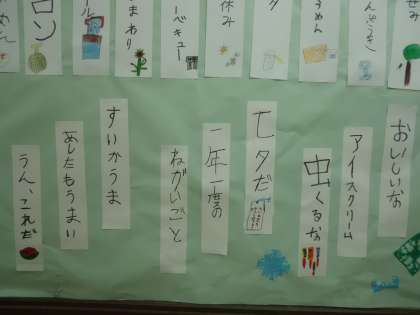 せみ
んぷうき
うめん
休み
ーベキュー
まわり
ール
ロン
おいしいな
アイスクリーム
虫くるな
七夕だ
一年一度の
ねがいごと
すいかうま
あしたもうまい
うん、これだ